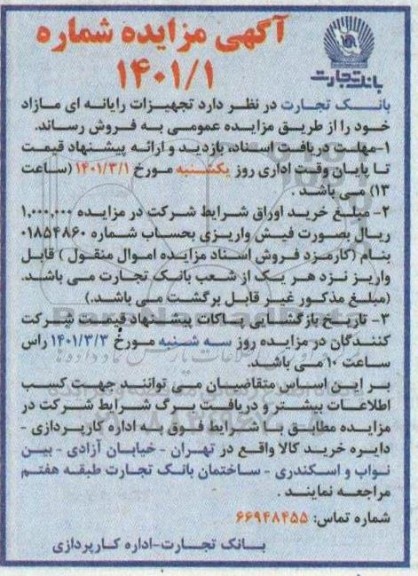 آگهی مزایده شماره
۱۴۰۱/۱
بانک تجارت
بانک تجارت در نظر دارد تجهیزات رایانه ای مازاد
خود را از طریق مزایده عمومی به فروش رساند.
۱-مهلت دریافت اسناد، بازدید و ارائه پیشنهاد قیمت
تا پایان وقت اداری روز یکشنبه مورخ ۱۴۰۱/۳/۱ (ساعت
۱۳) می باشد.
۲- مبلغ خرید اوراق شرایط شرکت در مزایده ۱,۰۰۰,۰۰۰
ریال بصورت فیش واریزی بحساب شماره ۰۱۸۵۴۸۶۰
بنام (کارمزد فروش اسناد مزایده اموال منقول) قابل
واریز نزد هر یک از شعب بانک تجارت می باشد.
(مبلغ مذکور غیر قابل برگشت می باشد.)
۳- تاریخ بازگشایی پاکات پیشنهاد قیمت شرکت
کنندگان در مزایده روز سه شنبه مورخ ۱۴۰۱/۳/۳ راس
ساعت ۱۰ می باشد.
بر این اساس متقاضیان می توانند جهت کسب
اطلاعات بیشتر و دریافت برگ شرایط شرکت در
مزایده مطابق با شرایط فوق به اداره کارپردازی -
دایره خرید کالا واقع در تهران - خیابان آزادی - بین
نواب و اسکندری - ساختمان بانک تجارت طبقه هفتم
مراجعه نمایند.
شماره تماس: ۶۶۹۴۸۴۵۵
بانک تجارت-اداره کارپردازی